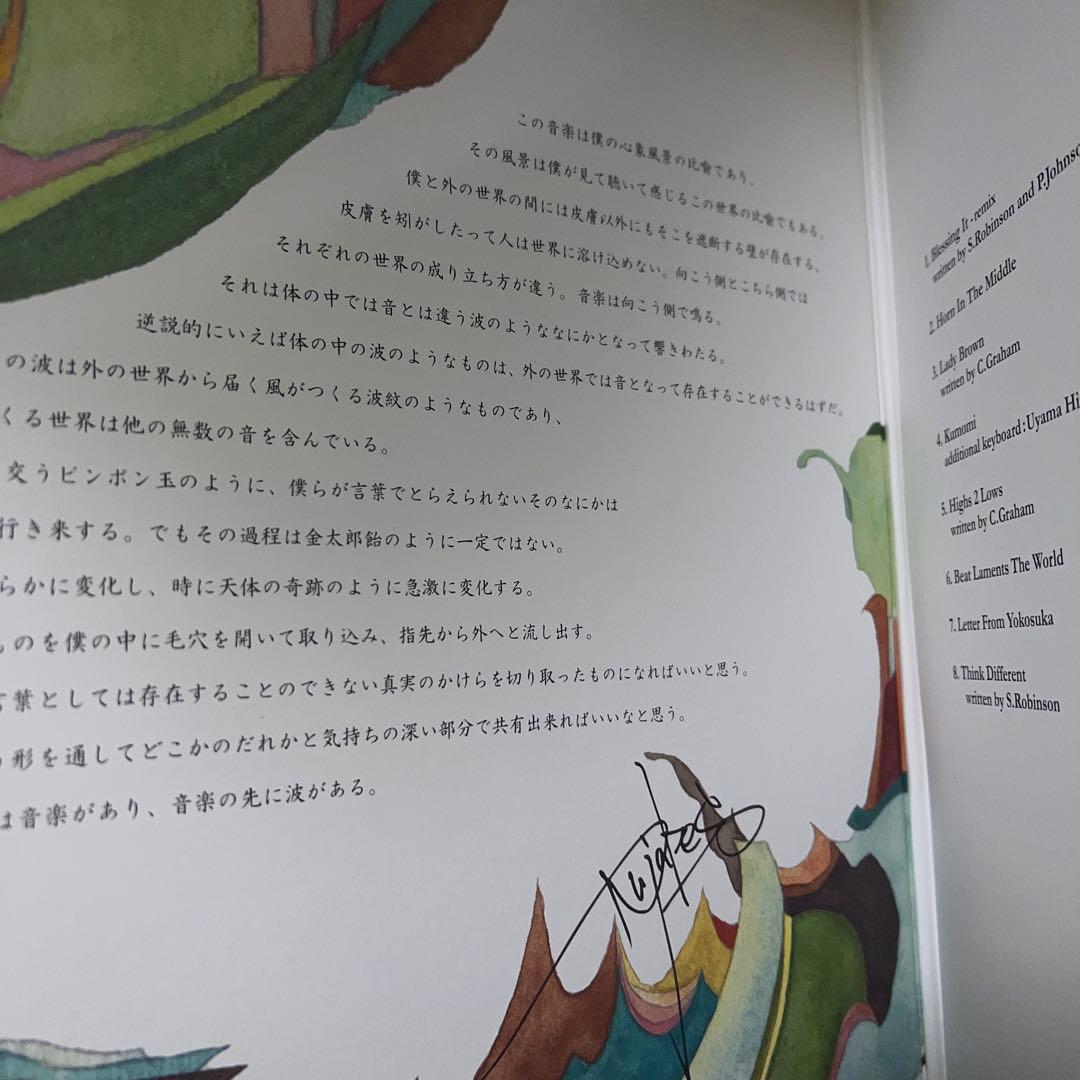 この音楽は僕の心象風景の比喩であり、
その風景は僕が見て聴いて感じるこの世界の比喩でもある。
僕と外の世界の間には皮膚以外にもそこを遮断する壁が存在する。
皮膚を剥がしたって人は世界に溶け込めない。向こう側とこちら側では
それぞれの世界の成り立ち方が違う。音楽は向こう側で鳴る。
それは体の中では音とは違う波のようななにかとなって響きわたる。
逆説的にいえば体の中の波のようなものは、外の世界では音となって存在することができるはずだ。
の波は外の世界から届く風がつくる波紋のようなものであり、
くる世界は他の無数の音を含んでいる。
交うピンポン玉のように、僕らが言葉でとらえられないそのなにかは
行き来する。でもその過程は金太郎飴のように一定ではない。
らかに変化し、時に天体の奇跡のように急激に変化する。
ものを僕の中に毛穴を開いて取り込み、指先から外へと流し出す。
言葉としては存在することのできない真実のかけらを切り取ったものになればいいと思う。
形を通してどこかのだれかと気持ちの深い部分で共有出来ればいいなと思う。
は音楽があり、音楽の先に波がある。
1. Blessing It -remix
written by S.Robinson and P.Johnso
2. Horn In The Middle
3. Lady Brown
written by C.Graham
4. Kumomi
additional keyboard : Uyama Hi
5. Highs 2 Lows
written by C.Graham
6. Beat Laments The World
7. Letter From Yokosuka
8. Think Different
written by S.Robinson